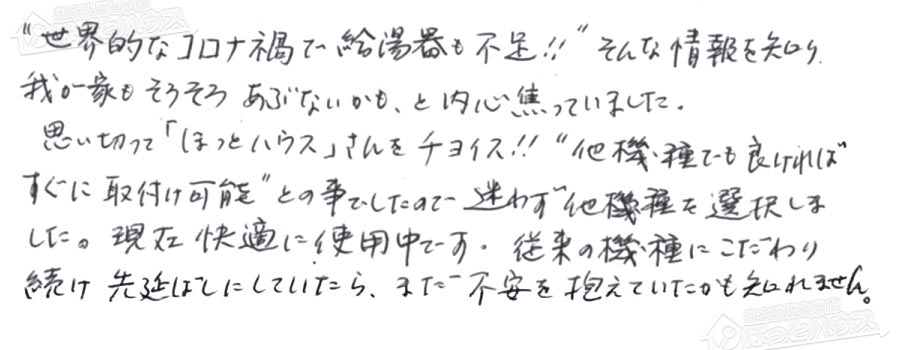 "世界的なコロナ禍で給湯器も不足!!" そんな情報を知り
我が家もそろそろ あぶないかも、と内心焦っていました。
思い切って「ほっとハウス」さんをチョイス!! "他機種でも良ければ
すぐに取付け可能" との事でしたので 迷わず他機種を選択しま
した。現在 快適に使用中です。従来の機種にこだわり
続け 先延ばしにしていたら、まだ不安を抱えていたかも知れません。
ほっとハウス